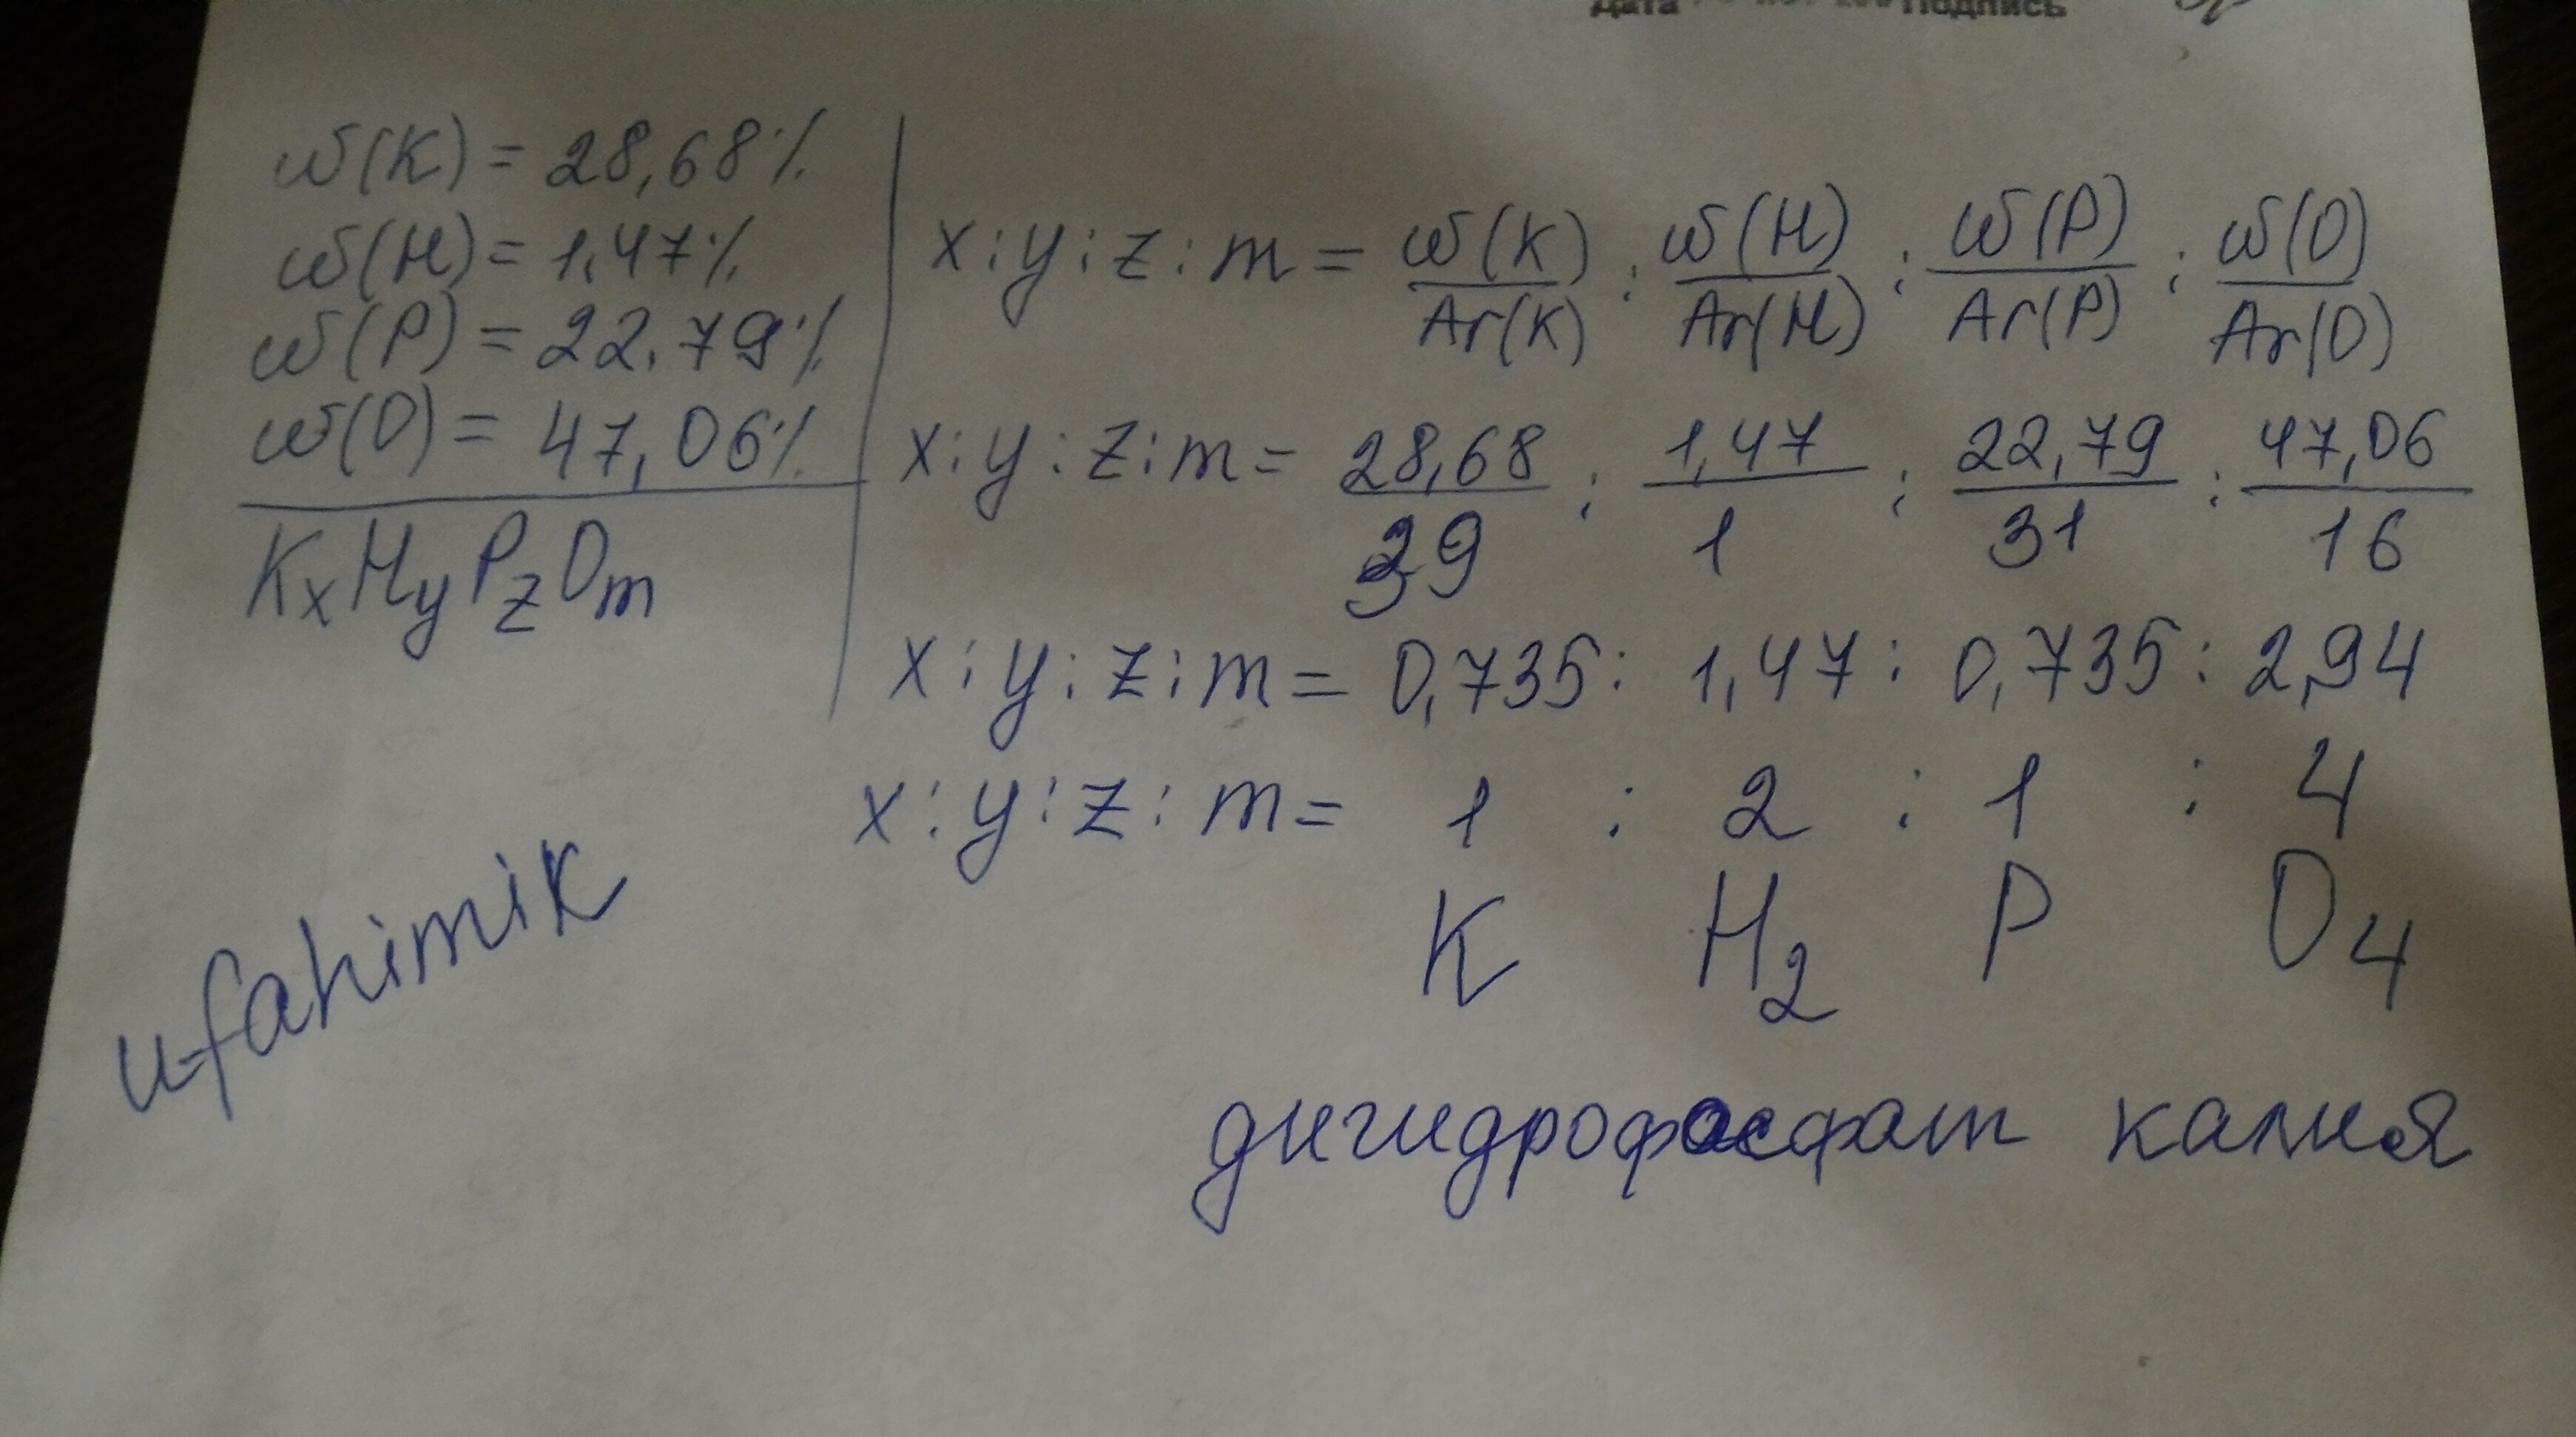 Дата Подпись
ω(K) = 28,68%
ω(H) = 1,47%
ω(P) = 22,79%
ω(O) = 47,06%
KxHyPzOm
x:y:z:m = ω(K)/Ar(K) : ω(H)/Ar(H) : ω(P)/Ar(P) : ω(O)/Ar(O)
x:y:z:m = 28,68/39 : 1,47/1 : 22,79/31 : 47,06/16
x:y:z:m = 0,735 : 1,47 : 0,735 : 2,94
x:y:z:m = 1 : 2 : 1 : 4
K H2 P O4
дигидрофосфат калия
ufahimik